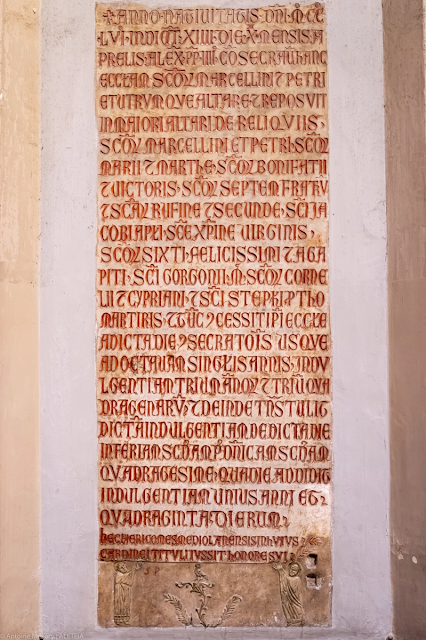 ✠ ANNO NATIVITATIS DNI M CC
LVI INDICT XIIII DIE X MENSIS A
PRELIS ALEX PP IIII COSECRAVI HANC
ECCLAM SCOR MARCELLINI ⁊ PETRI
ET UTRVMQVE ALTARE ⁊ REPOSVIT
IN MAIORI ALTARI DE RELIQVIIS
SCOR MARCELLINI ET PETRI SCOR
MARII ⁊ MARTHE SCOR BONIFATII
⁊ VICTORIS SCOR SEPTEM FRATRV
⁊ SCAR RUFINE ⁊ SECUNDE SCI JA
COBI APLI SCE XPINE VIRGINIS
SCOR SIXTI FELICISSIMI ⁊ AGA
PITI SCI GORGONII M SCOR CORNE
LII ⁊ CYPRIANI ⁊ SCI STEPHI PTHO
MARTIRIS ⁊ CCESSIT IPI ECCLE
A DICTA DIE CSECRATOIS USQUE
AD OCTAVAM SINGLIS ANNIS INDV
LGENTIAM TRIUM ANNOR ⁊ TRIU QVA
DRAGENARV ⁊ DEINDE TNSTULIT
DICTA INDULGENTIAM DE DICTA DIE
IN FERIAM SCDAM P DNICAM SCDAM
QVADRAGESIME QUA DIE ADDIDIT
INDULGENTIAM UNIUS ANNI ET
QVADRAGINTA DIERUM
HEC HERICO MES MEDIOLANENSIS IN HVIVS
CARDINE TITVLI IVSSIT HONORE SVI
S P